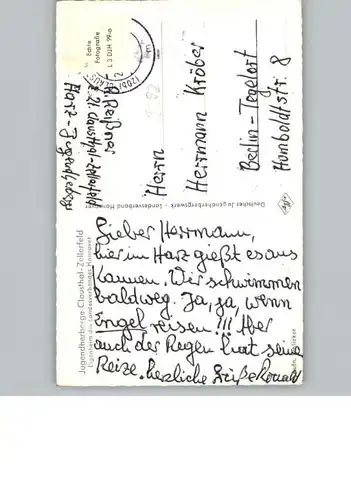 Echte
Fotografie
L 3 DJH 99-a
H. Reißner
z. Zt. Clausthal-Zellerfeld
Harz - Jugendherberge
Herrn
Herrmann Kröber
Berlin-Tegelort
Humboldtstr. 8
Deutsches Jugendherbergswerk - Landesverband Hannover
Jugendherberge Clausthal-Zellerfeld
Eigenheim des Landesverbandes Hannover
Lieber Herrmann,
hier im Harz gießt es aus
Kannen. Wir schwimmen
bald weg. Ja, ja, wenn
Engel reisen!!! Aber
auch der Regen hat seine
Reize. Herzliche Grüße Ronald